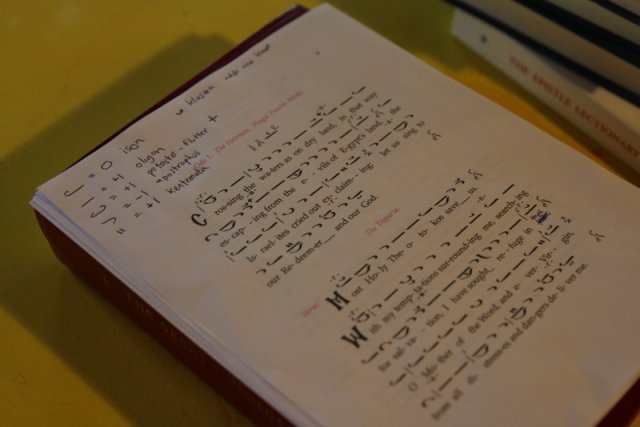 klasma
= 0 ison
= +1 oligon
petaste - flutter +
= -1 apostrophus
= +1 kentemata
Ode 1. The Heirmos. Plagal Fourth Mode
Crossing the waters as on dry land, in that way
es- cap- ing from the e- vils of Egypt's land, the
Is- rael- ites cried out ex- claim- ing: let us sing to
our Re- deem- er and our God.
The Troparia.
Most Ho- ly The- o- to- kos save us.
With my temp- ta- tions sur- round- ing me, search- ing
for sal- va- tion, I have sought re- fuge in you.
O Mo- ther of the Word, and e- ver- Vir- gin,
from all dis- tresses and dangers de- li- ver me.
THE EPISTLE LECTIONARY